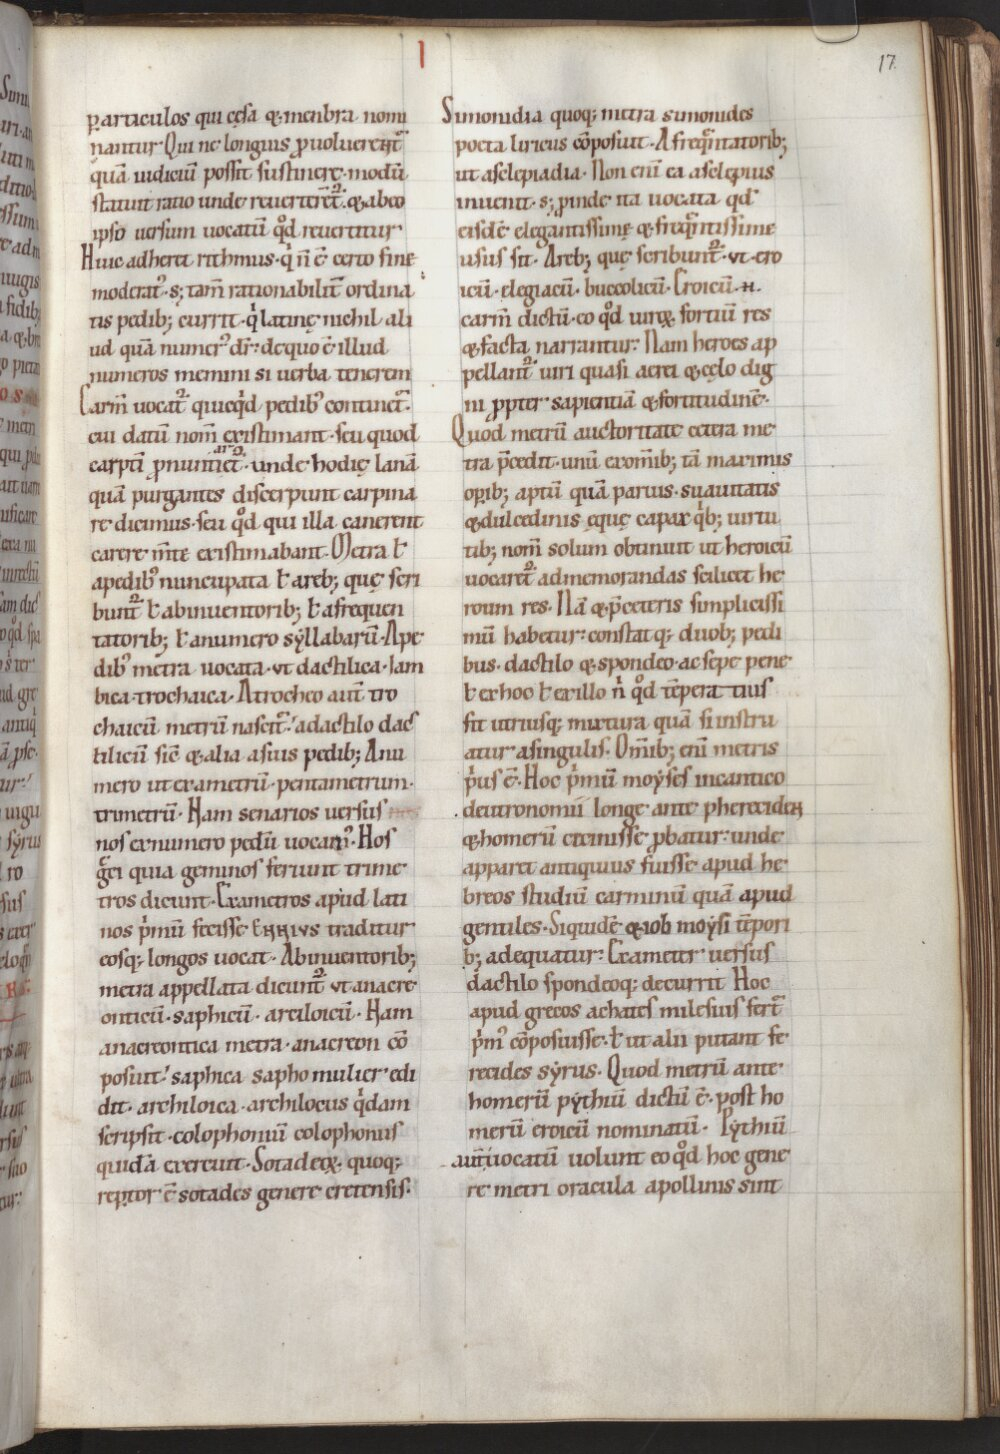 I
17
particulos qui cęsa & menbra nomi
nantur Qui ne longius ꝓuoluerent̄
quā iudiciū possit sustinere· modū
statuit ratio unde reuerteret̄· & abeo
ipso versum uocatū qd̄ reuertitur
Huic adheret rithmus· q̇ n̄ ē certo fine
moderat᷒· s; tam̄ rationabilit̄ ordina
tis pedib; currit· q̇ latinę nichil ali
ud quā numer᷒ dr̄: de quo ē illud
numeros memini si uerba tenerem
Carm̄ uocat̄ quicq̇d pedib᷒ continet̄·
cui datū nom̄ existimant· seu quod
carptī ꝓnuntiet̄· unde hodię lanā
quā purgantes discerpunt carpina
re dicimus· seu qd̄ qui illa canerent
carere m̄te existimabant· Metra ł
a pedib᷒ nuncupata ł a reb; quę scri
bunt̄ ł ab inuentorib; ł a frequen
tatorib; ł a numero syllabarū· A pe
dib᷒ metra uocata· vt dactilica· Iam
bica· trochaica· A trocheo aut̄ tro
chaicū metrū nascit̄· a dactilo dac
tilicū sic̄ & alia a suis pedib; A nu
mero ut exametrū· pentametrum·
trimetrū· Nam senarios uersus
nos ex numero pedū uocam᷒· Hos
gͣci quia geminos feriunt trime
tros dicunt· Exametros apud lati
nos p̄mū fecisse Ennius traditur
eosq; longos uocat· Ab inuentorib;
metra appellata dicunt̄ vt anacre
onticū· saphicū· arciloicū· Nam
anacreontica metra· anacreon cō
posuit· saphica sapho mulier edi
dit· archiloica· archilocus q̇dam
scripsit· colophoniū colophonius
quidā exercuit· Sotadeoꝝ quoq;
reptor ē sotades genere cretensis·
Simonidia quoq; metra simonides
poeta liricus cōposuit· A freq̄ntatorib;
ut asclepiadia· Non enī ea asclepius
inuenit· s; ꝓinde ita uocata qd̄
eisdē elegantissime & freq̄ntissime
usus sit· A reb; quę scribunt̄· vt ero
icū· elegiacū· buccolicū· Eroicū· n·
carm̄ dictū· eo qd̄ uiroꝝ fortiū res
& facta narrantur: Nam heroes ap
pellant̄ uiri quasi aerei & cęlo dig
ni ꝓpter sapientiā & fortitudinē·
Quod metrū auctoritate cetera me
tra p̄cedit· unū ex om̄ib; tā maximis
oꝑib; aptū quā paruis· suauitatis
& dulcedinis ęquę capax q̇b; uirtu
tib; nom̄ solum obtinuit ut heroicū
uocaret̄ ad memorandas scilicet he
roum res· Nā & p̄ ceteris simplicissi
mū habetur: constatq; duob; pedi
bus· dactilo & spondeo· ac sepe pene
ł ex hoc ł ex illo n̄ qd̄ tēperatius
fit utriusq; mixtura quā si instru
atur a singulis· Om̄ib; enī metris
p̄us ē· Hoc p̄mū moyses in cantico
deutronomii longe ante pherecidem
& homerū cecinisse ꝓbatur· unde
apparet antiquius fuisse apud he
breos studiū carminū quā apud
gentiles· Siquidē & iob moysi tēpori
b; adequatur: Exameter uersus
dactilo spondeoq; decurrit Hoc
apud grecos achates milesius fert̄
p̄m᷒ cōposuisse· ł ut alii putant fe
recides syrus· Quod metrū ante
homerū pythiū dictū ē· post ho
merū eroicū nominatū· Pythiū
aut̄ uocatū uolunt eo qd̄ hoc gene
re metri oracula apollinis sint